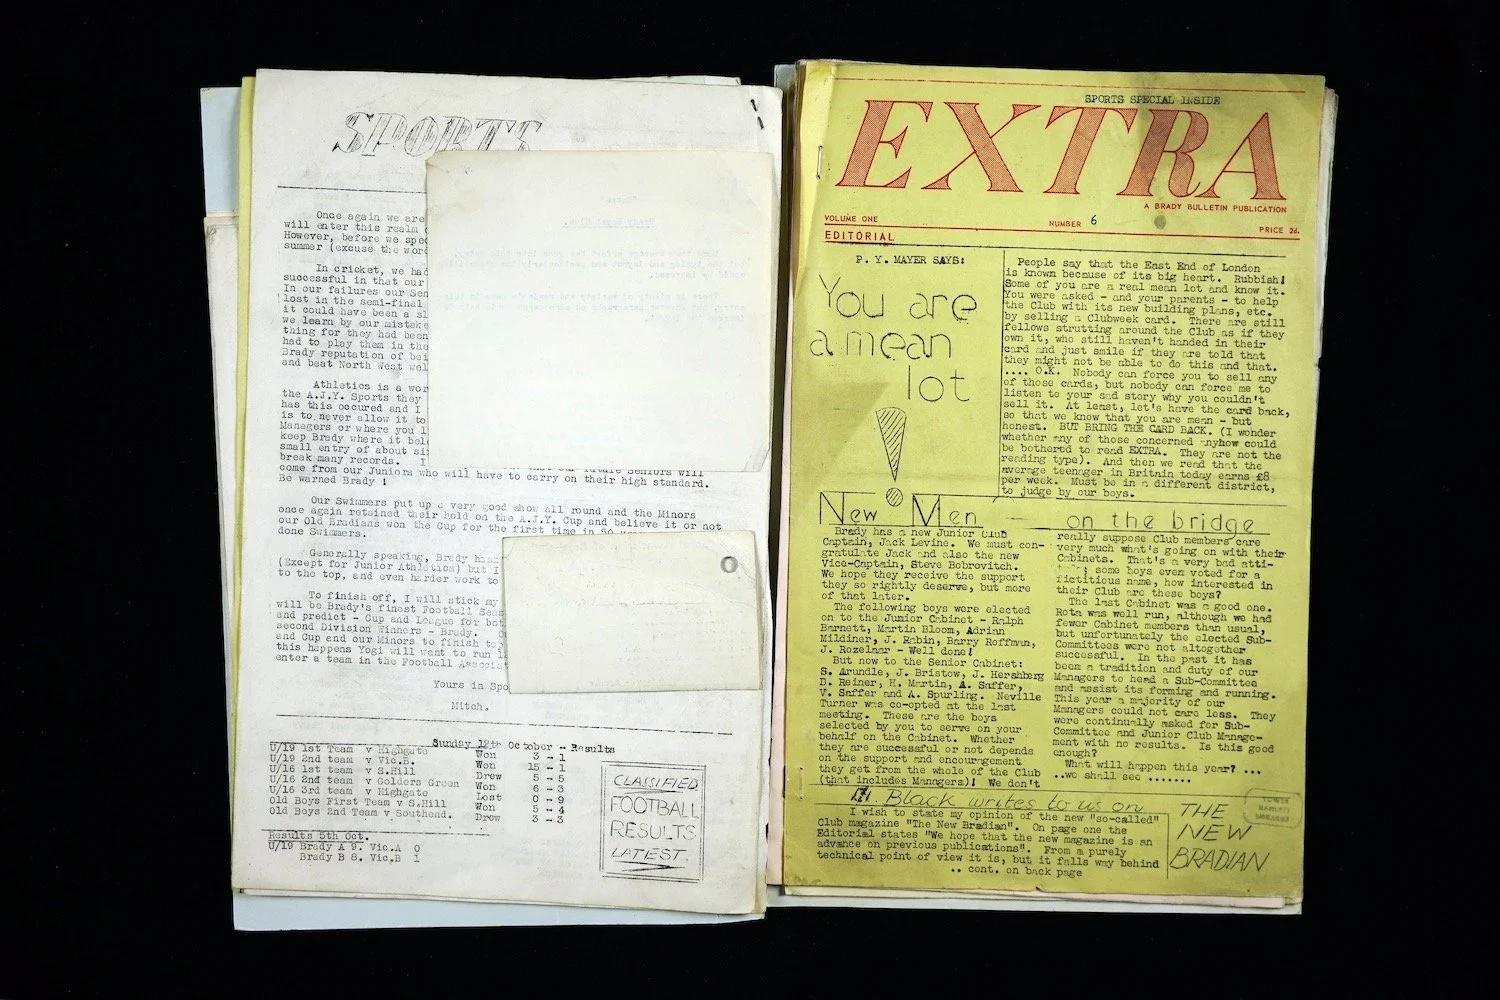 SPORTS
Once again we are
will enter this realm
However, before we spec
summer (excuse the word
In cricket, we had
successful in that our
In our failures our Sen
lost in the semi-final
it could have been a sl
we learn by our mistake
thing for they had been
had to play them in the
Brady reputation of bei
and beat North West wel
Athletics is a wor
the A.J.Y. Sports they
has this occured and I
is to never allow it to
Managers or where you l
keep Brady where it bel
small entry of about si
break many records. I
our future Seniors will
come from our Juniors who will have to carry on their high standard.
Be warned Brady !
Our Swimmers put up a very good show all round and the Minors
once again retained their hold on the A.J.Y. Cup and believe it or not
our Old Bradians won the Cup for the first time in 50
done Swimmers.
Generally speaking, Brady has
(Except for Junior Athletics) but I
to the top, and even harder work to
To finish off, I will stick my
will be Brady's finest Football Seas
and predict - Cup and League for bot
second Division Winners - Brady.
and Cup and our Minors to finish to
this happens Yogi will want to run
enter a team in the Football Associ
Yours in Spo
Mitch.
Sunday 12th October -- Results
U/19 1st Team v Highgate Won 3 - 1
U/19 2nd team v Vic.B. Won 15 - 1
U/16 1st team v S.Hill Drew 5 - 5
U/16 2nd team v Golders Green Won 6 - 3
U/16 3rd team v Highgate Lost 0 - 9
Old Boys First Team v S.Hill Won 5 - 4
Old Boys 2nd Team v Southend. Drew 3 - 3
CLASSIFIED
FOOTBALL
RESULTS
LATEST.
Results 5th Oct.
U/19 Brady A 9. Vic.A 0
Brady B 8. Vic.B 1
SPORTS SPECIAL INSIDE
EXTRA
A BRADY BULLETIN PUBLICATION
VOLUME ONE NUMBER 6 PRICE 2d.
EDITORIAL
P. Y. MAYER SAYS:
You are
a mean
lot
!
People say that the East End of London
is known because of its big heart. Rubbish!
Some of you are a real mean lot and know it.
You were asked - and your parents - to help
the Club with its new building plans, etc.
by selling a Clubweek card. There are still
fellows strutting around the Club as if they
own it, who still haven't handed in their
card and just smile if they are told that
they might not be able to do this and that.
.... O.K. Nobody can force you to sell any
of those cards, but nobody can force me to
listen to your sad story why you couldn't
sell it. At least, let's have the card back,
so that we know that you are mean - but
honest. BUT BRING THE CARD BACK. (I wonder
whether any of those concerned anyhow could
be bothered to read EXTRA. They are not the
reading type). And then we read that the
average teenager in Britain today earns £8
per week. Must be in a different district,
to judge by our boys.
New Men on the bridge
Brady has a new Junior Club
Captain, Jack Levine. We must con-
gratulate Jack and also the new
Vice-Captain, Steve Bobrovitch.
We hope they receive the support
they so rightly deserve, but more
of that later.
The following boys were elected
on to the Junior Cabinet - Ralph
Barnett, Martin Bloom, Adrian
Mildiner, J. Rabin, Barry Roffman,
J. Rozelaar - Well done!
But now to the Senior Cabinet:
S. Arundle, J. Bristow, J. Hershberg
D. Reiner, H. Martin, A. Saffer,
V. Saffer and A. Spurling. Neville
Turner was co-opted at the last
meeting. These are the boys
selected by you to serve on your
behalf on the Cabinet. Whether
they are successful or not depends
on the support and encouragement
they get from the whole of the Club
(that includes Managers)! We don't
really suppose Club members care
very much what's going on with their
Cabinets. That's a very bad atti-
some boys even voted for a
fictitious name, how interested in
their Club are these boys?
The last Cabinet was a good one.
Rota was well run, although we had
fewer Cabinet members than usual,
but unfortunately the elected Sub-
Committees were not altogether
successful. In the past it has
been a tradition and duty of our
Managers to head a Sub-Committee
and assist its forming and running.
This year a majority of our
Managers could not care less. They
were continually asked for Sub-
Committee and Junior Club Manage-
ment with no results. Is this good
enough?
What will happen this year? ...
..we shall see .......
Black writes to us on THE
NEW
BRADIAN
I wish to state my opinion of the new "so-called"
Club magazine "The New Bradian". On page one the
Editorial states "We hope that the new magazine is an
advance on previous publications". From a purely
technical point of view it is, but it falls way behind
.. cont. on back page